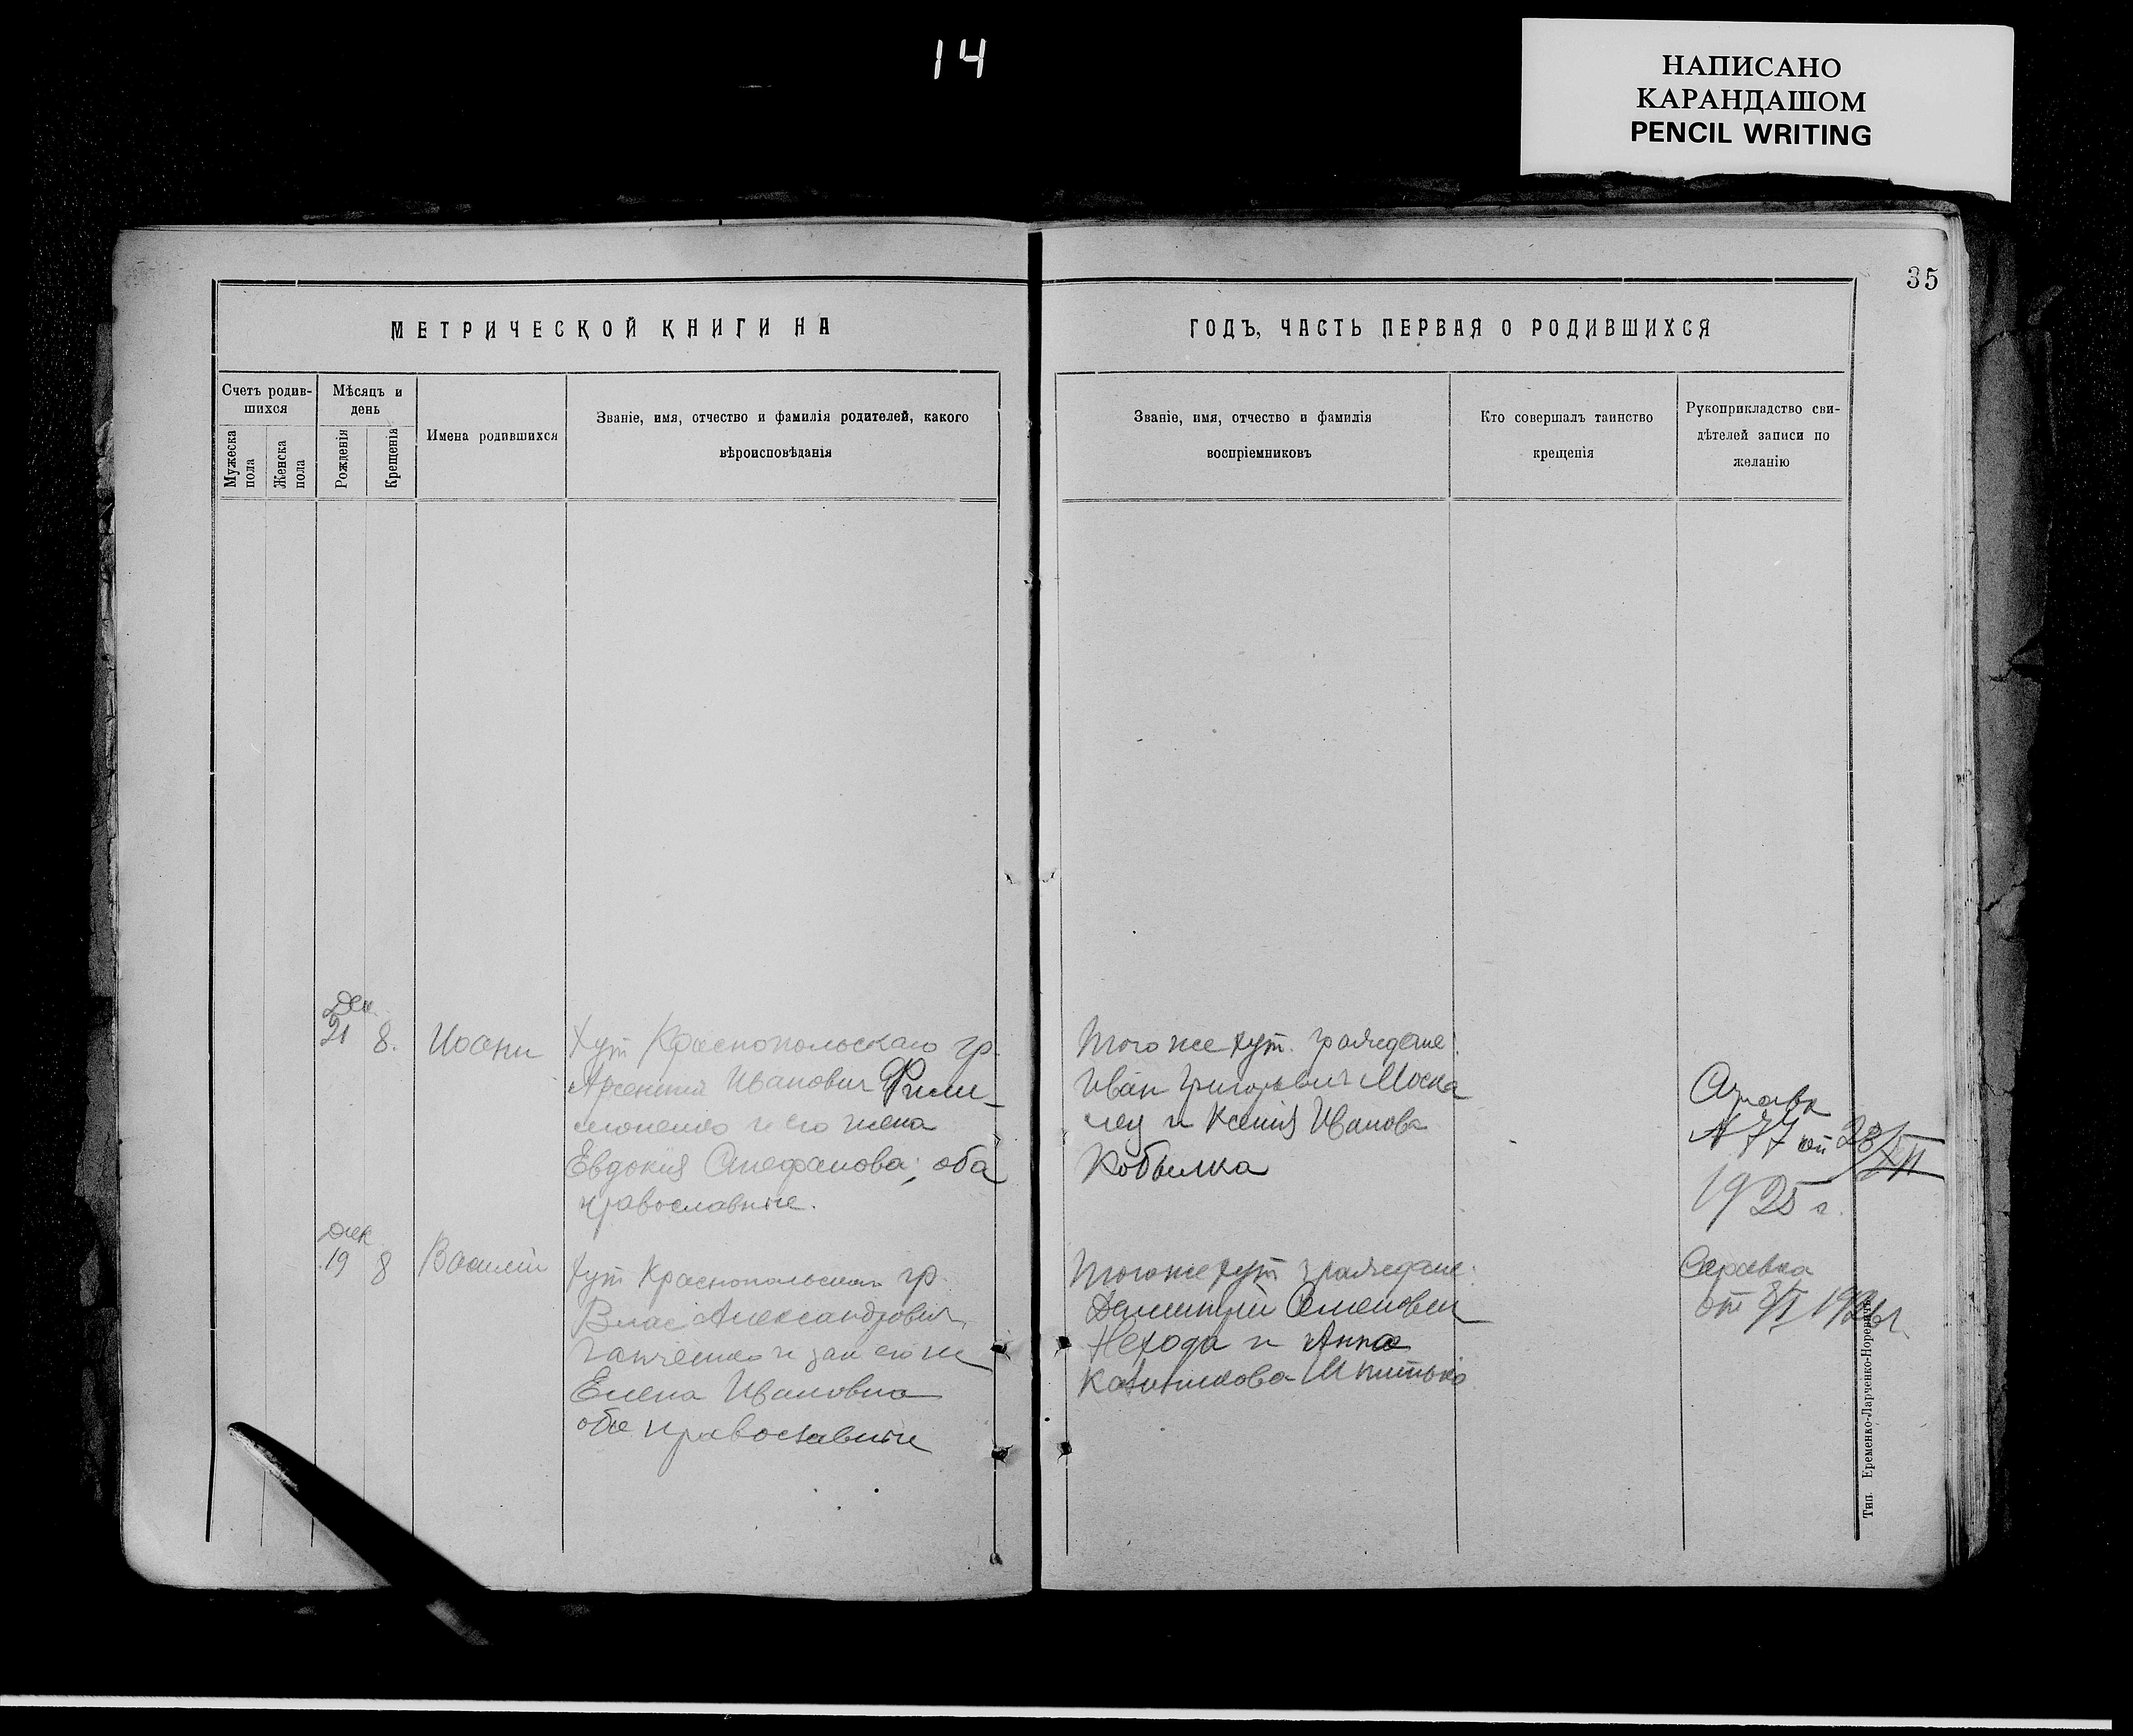 14
НАПИСАНО
КАРАНДАШОМ
PENCIL WRITING
35
МЕТРИЧЕСКОЙ КНИГИ НА
ГОДЪ, ЧАСТЬ ПЕРВАЯ О РОДИВШИХСЯ
Счетъ родив-
шихся
Мужеска
пола
Женска
пола
Мѣсяцъ и
день
Рожденія
Крещенія
Имена родившихся
Званіе, имя, отчество и фамилія родителей, какого
вѣроисповѣданія
Званіе, имя, отчество и фамилія
воспріемниковъ
Кто совершалъ таинство
крещенія
Рукоприкладство сви-
дѣтелей записи по
желанію
Дек
21 8. Иоанн
Хут Краснопольскаго гр.
Арсентий Иванович Фили-
моненко и его жена
Евдокия Стефанова; оба
православные.
Того же хут. граждане:
Иван Григорьевич Моска
лец и Ксения Иванова
Кобылка
Справка
N 77 от 28/XII
1925 г.
Дек
19 8 Василий
Хут Краснопольскаго гр.
Влас Александрович
Ганченко и зак его же
Елена Ивановна
обе православные
Того же хут граждане:
Димитрий Семенович
Нехода и Анна
Справка
от 8/I 1926 г.
Тип. Еременко-Ларченко-Норевичъ.